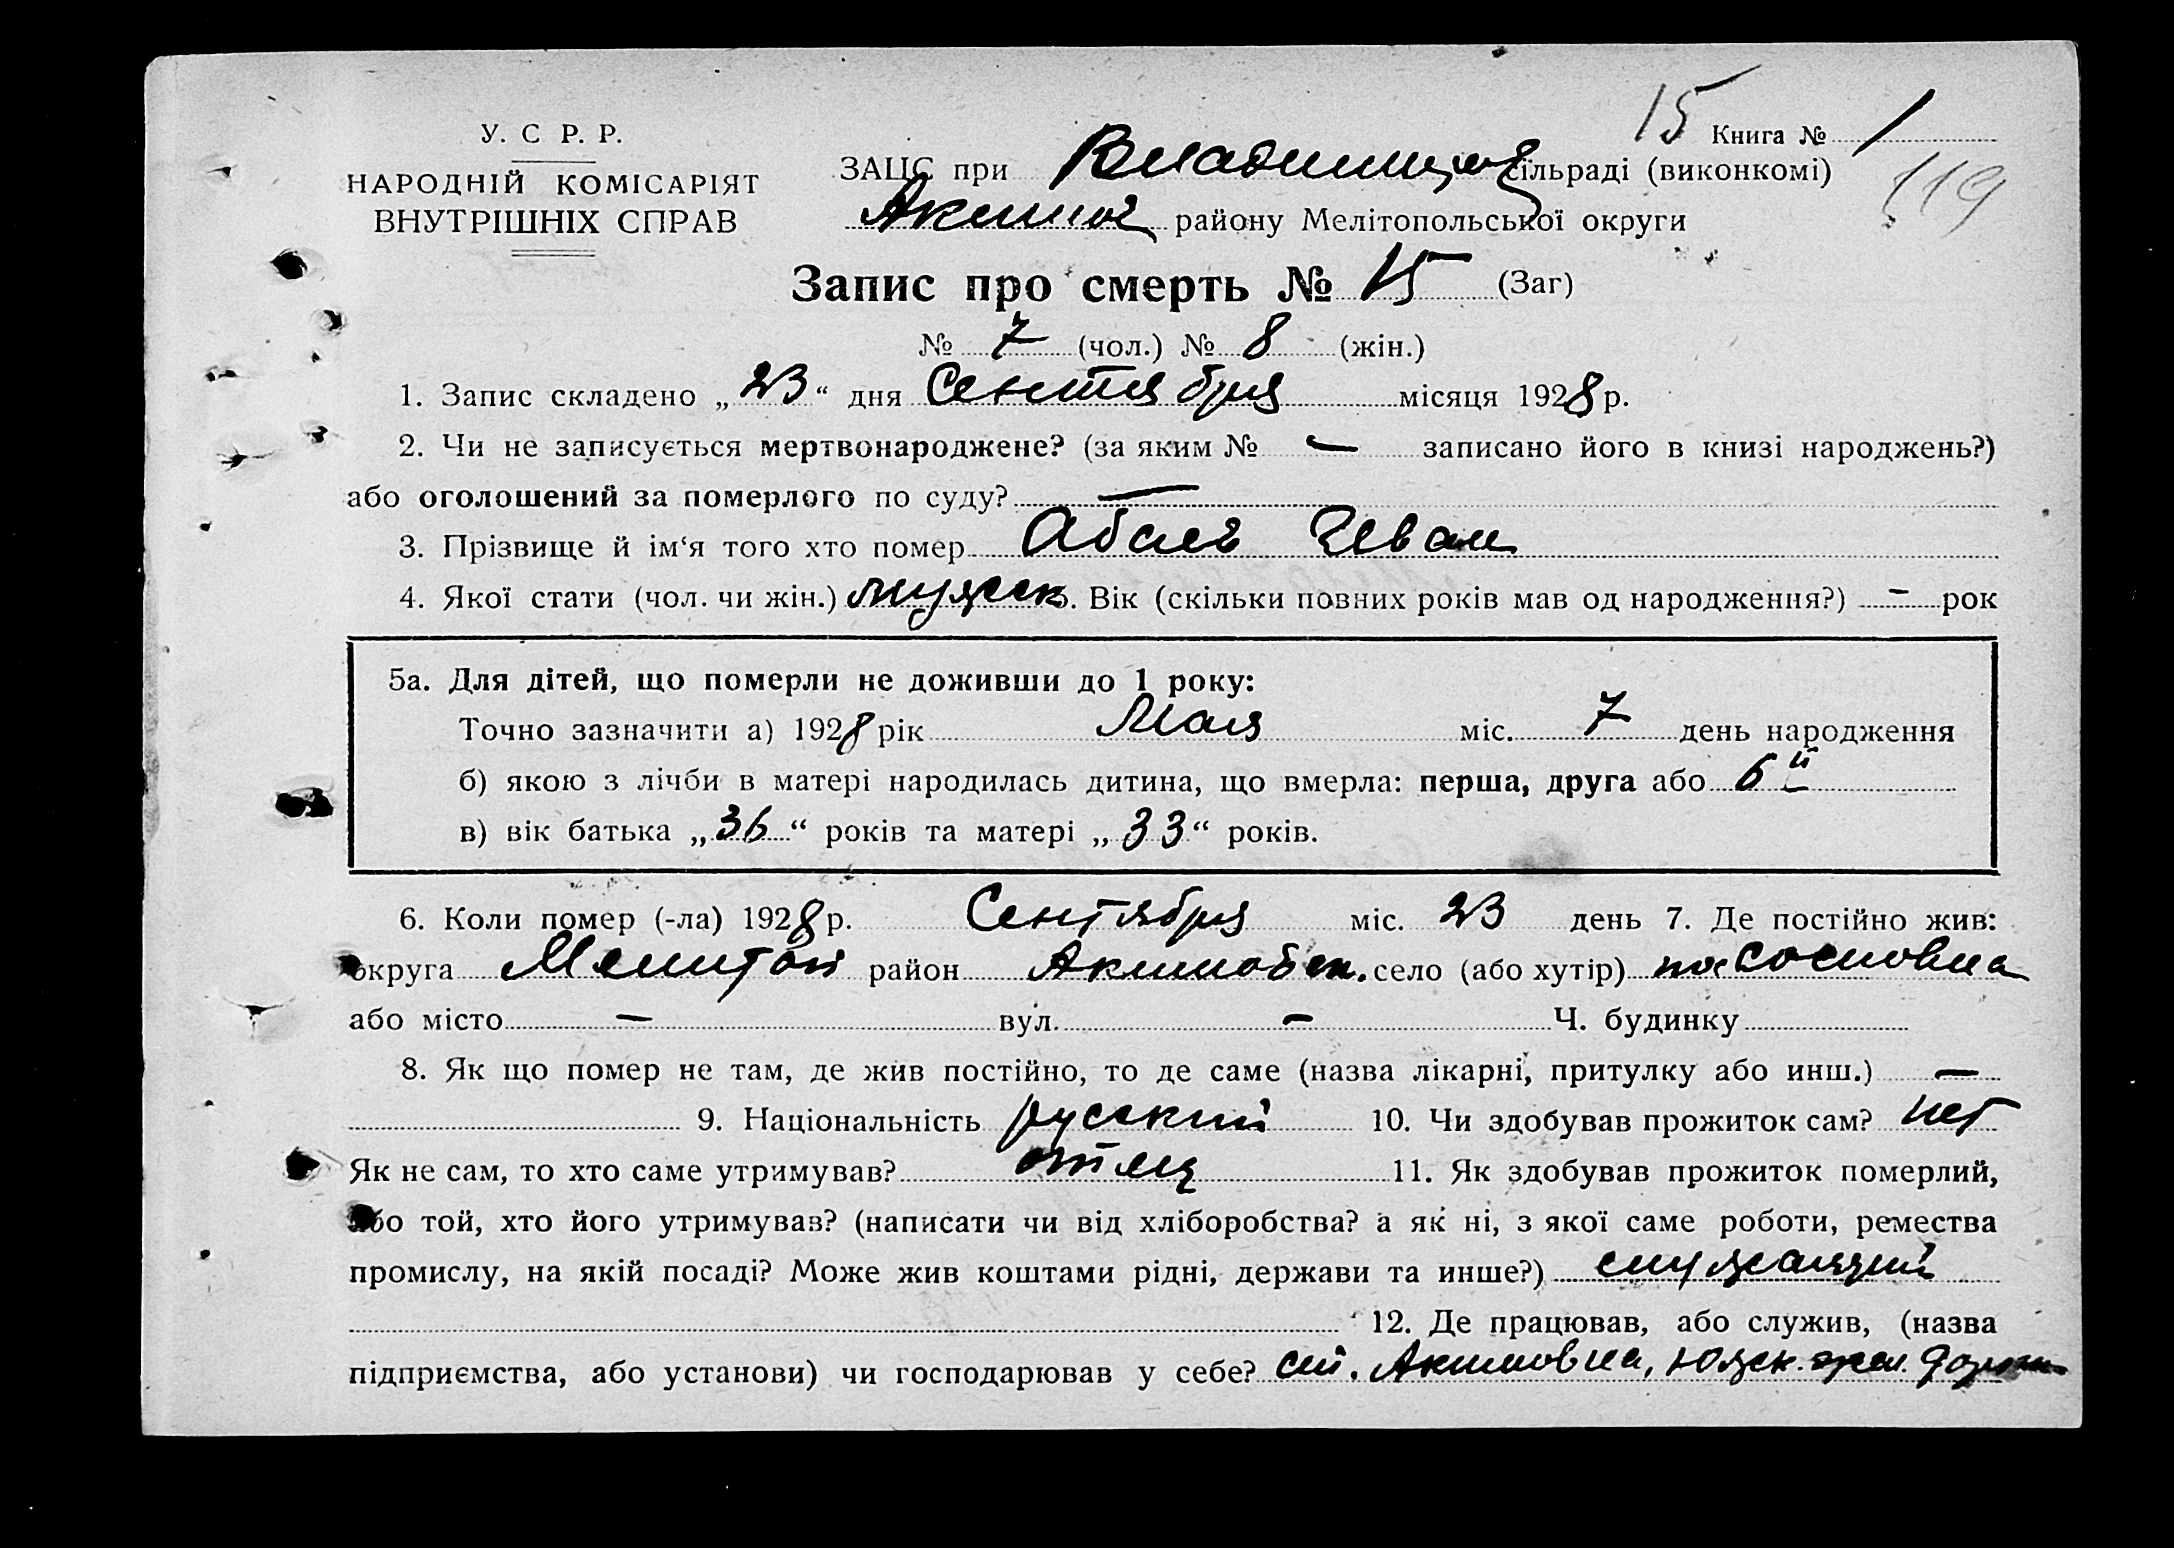 15 Книга № 1
У. С Р. Р.
НАРОДНІЙ КОМІСАРІЯТ
ВНУТРІШНІХ СПРАВ
119
ЗАЦС при сільраді (виконкомі)
Акимов району Мелітопольської округи
Запис про смерть № 15 (Заг)
№ 7 (чол.) № 8 (жін.)
1. Запис складено „23“ дня Сентября місяця 1928 р.
2. Чи не записується мертвонароджене? (за яким № — записано його в книзі народжень?)
або оголошений за померлого по суду? —
3. Прізвище й ім‘я того хто помер Иван
4. Якої стати (чол. чи жін.) мужск. Вік (скільки повних років мав од народження?) - рок
5а. Для дітей, що померли не доживши до 1 року:
Точно зазначити а) 1928 рік Мая міс. 7 день народження
б) якою з лічби в матері народилась дитина, що вмерла: перша, друга або 6й
в) вік батька „36“ років та матері „33“ років.
6. Коли помер (-ла) 1928 р. Сентября міс. 23 день 7. Де постійно жив:
округа Мелитоп район Акимовск. село (або хутір) пос
або місто — вул. — Ч. будинку
8. Як що помер не там, де жив постійно, то де саме (назва лікарні, притулку або инш.) —
9. Національність русский 10. Чи здобував прожиток сам? нет
Як не сам, то хто саме утримував? отец 11. Як здобував прожиток померлий,
або той, хто його утримував? (написати чи від хліборобства? а як ні, з якої саме роботи, ремества
промислу, на якій посаді? Може жив коштами рідні, держави та инше?) служащий
12. Де працював, або служив, (назва
підприємства, або установи) чи господарював у себе? ст. Акимовка, Южск. жел. дороги